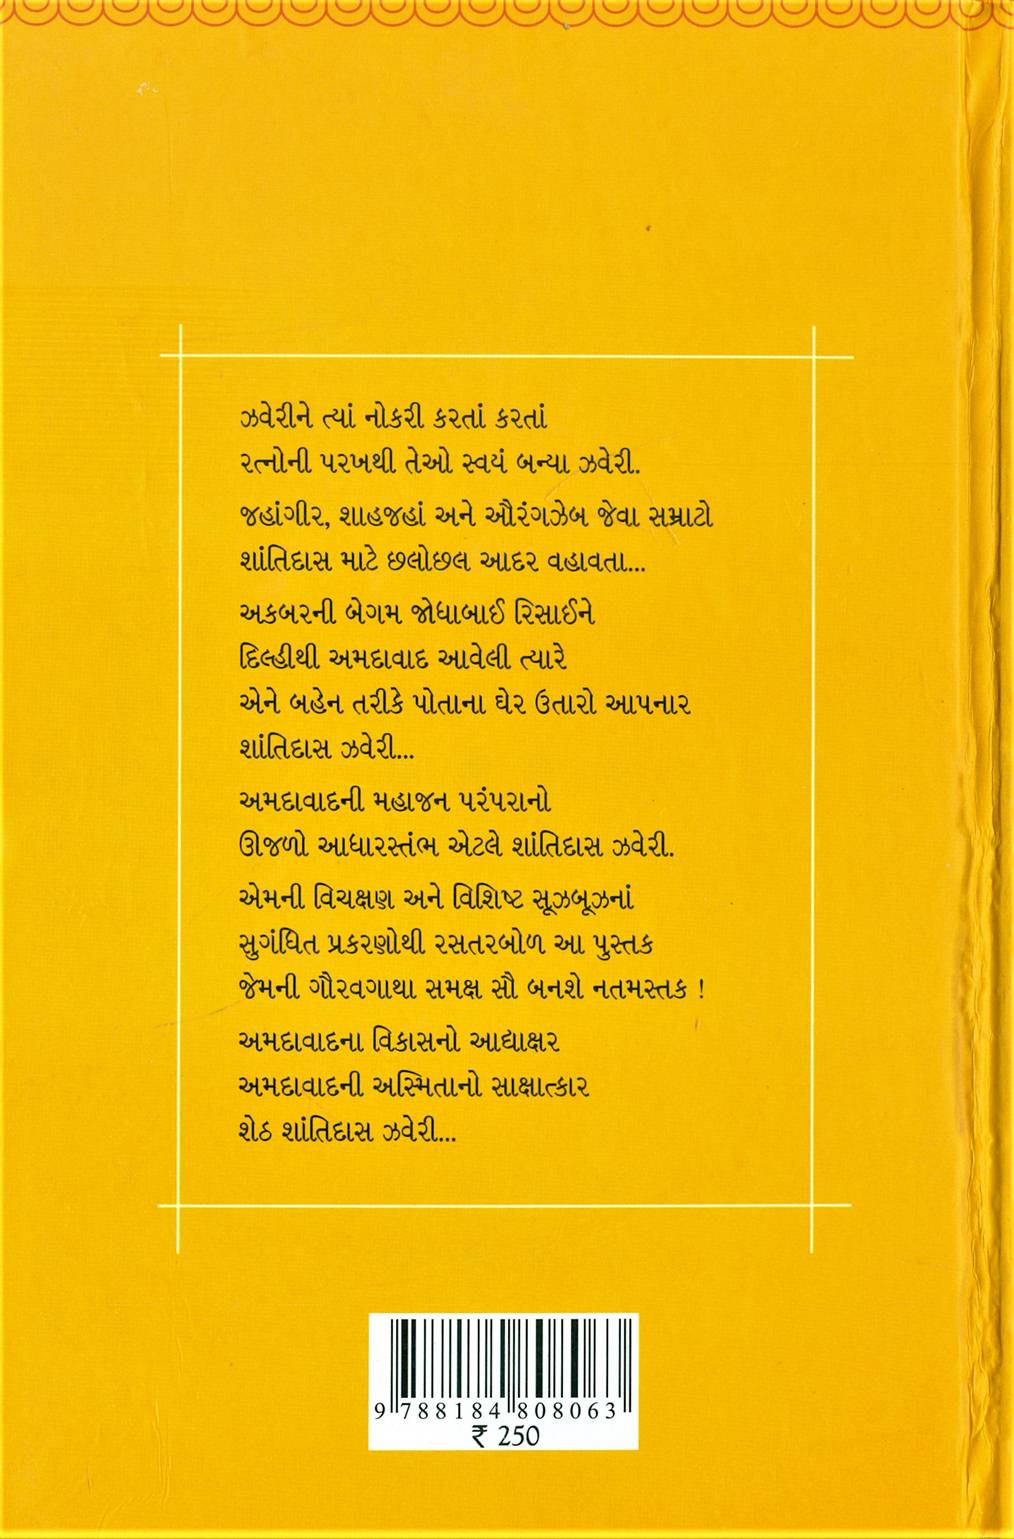 ઝવેરીને ત્યાં નોકરી કરતાં કરતાં
રત્નોની પરખથી તેઓ સ્વયં બન્યા ઝવેરી.
જહાંગીર, શાહજહાં અને ઔરંગઝેબ જેવા સમ્રાટો
શાંતિદાસ માટે છલોછલ આદર વહાવતા...
અકબરની બેગમ જોધાબાઈ રિસાઈને
દિલ્હીથી અમદાવાદ આવેલી ત્યારે
એને બહેન તરીકે પોતાના ઘેર ઉતારો આપનાર
શાંતિદાસ ઝવેરી...
અમદાવાદની મહાજન પરંપરાનો
ઊજળો આધારસ્તંભ એટલે શાંતિદાસ ઝવેરી.
એમની વિચક્ષણ અને વિશિષ્ટ સૂઝબૂઝનાં
સુગંધિત પ્રકરણોથી રસતરબોળ આ પુસ્તક
જેમની ગૌરવગાથા સમક્ષ સૌ બનશે નતમસ્તક !
અમદાવાદના વિકાસનો આદ્યાક્ષર
અમદાવાદની અસ્મિતાનો સાક્ષાત્કાર
શેઠ શાંતિદાસ ઝવેરી...
9 788184 808063
₹ 250